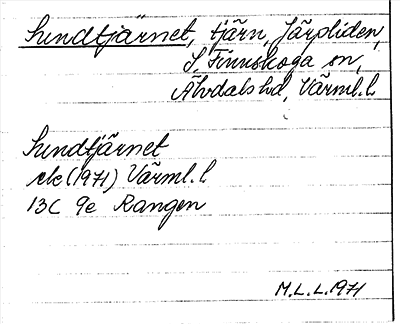 Sundtjärnet, tjärn, Järpliden,
S. Finnskoga sn,
Älvdals hd, Värml. l.
Sundtjärnet
ek (1971) Värml. l
13C 9e Rangen
M.L.L. 1971